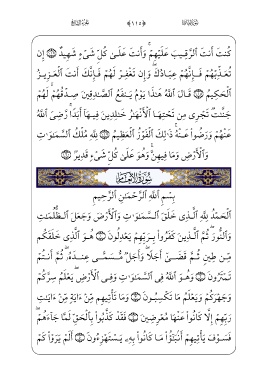 كُنتَ أَنتَ ٱلرَّقِيبَ عَلَيْهِمْ ۚ وَأَنتَ عَلَىٰ كُلِّ شَىْءٍ شَهِيدٌ ۝ إِن
تُعَذِّبْهُمْ فَإِنَّهُمْ عِبَادُكَ ۖ وَإِن تَغْفِرْ لَهُمْ فَإِنَّكَ أَنتَ ٱلْعَزِيزُ
ٱلْحَكِيمُ ۝ قَالَ ٱللَّهُ هَـٰذَا يَوْمُ يَنفَعُ ٱلصَّـٰدِقِينَ صِدْقُهُمْ ۚ لَهُمْ
جَنَّـٰتٌ تَجْرِى مِن تَحْتِهَا ٱلْأَنْهَـٰرُ خَـٰلِدِينَ فِيهَآ أَبَدًا ۚ رَّضِىَ ٱللَّهُ
عَنْهُمْ وَرَضُوا۟ عَنْهُ ۚ ذَٰلِكَ ٱلْفَوْزُ ٱلْعَظِيمُ ۝ لِلَّهِ مُلْكُ ٱلسَّمَـٰوَٰتِ
وَٱلْأَرْضِ وَمَا فِيهِنَّ ۚ وَهُوَ عَلَىٰ كُلِّ شَىْءٍ قَدِيرٌۢ ۝
سُورَةُ الأَنْعَامِ
بِسْمِ ٱللَّهِ ٱلرَّحْمَـٰنِ ٱلرَّحِيمِ
ٱلْحَمْدُ لِلَّهِ ٱلَّذِى خَلَقَ ٱلسَّمَـٰوَٰتِ وَٱلْأَرْضَ وَجَعَلَ ٱلظُّلُمَـٰتِ
وَٱلنُّورَ ۖ ثُمَّ ٱلَّذِينَ كَفَرُوا۟ بِرَبِّهِمْ يَعْدِلُونَ ۝ هُوَ ٱلَّذِى خَلَقَكُم
مِّن طِينٍ ثُمَّ قَضَىٰٓ أَجَلًا ۖ وَأَجَلٌ مُّسَمًّى عِندَهُۥ ۖ ثُمَّ أَنتُمْ
تَمْتَرُونَ ۝ وَهُوَ ٱللَّهُ فِى ٱلسَّمَـٰوَٰتِ وَفِى ٱلْأَرْضِ ۖ يَعْلَمُ سِرَّكُمْ
وَجَهْرَكُمْ وَيَعْلَمُ مَا تَكْسِبُونَ ۝ وَمَا تَأْتِيهِم مِّنْ ءَايَةٍ مِّنْ ءَايَـٰتِ
رَبِّهِمْ إِلَّا كَانُوا۟ عَنْهَا مُعْرِضِينَ ۝ فَقَدْ كَذَّبُوا۟ بِٱلْحَقِّ لَمَّا جَآءَهُمْ ۖ
فَسَوْفَ يَأْتِيهِمْ أَنۢبَـٰٓؤُا۟ مَا كَانُوا۟ بِهِۦ يَسْتَهْزِءُونَ ۝ أَلَمْ يَرَوْا۟ كَمْ